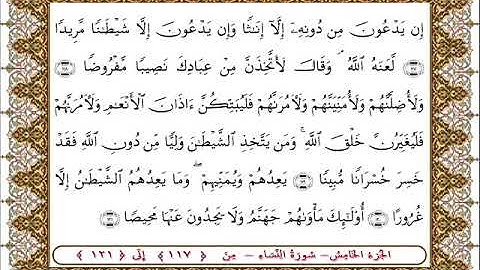 إِن يَدْعُونَ مِن دُونِهِۦٓ إِلَّآ إِنَٰثًا وَإِن يَدْعُونَ إِلَّا شَيْطَٰنًا مَّرِيدًا
﴿١١٧﴾ لَّعَنَهُ ٱللَّهُ ۘ وَقَالَ لَأَتَّخِذَنَّ مِنْ عِبَادِكَ نَصِيبًا مَّفْرُوضًا ﴿١١٨﴾
وَلَأُضِلَّنَّهُمْ وَلَأُمَنِّيَنَّهُمْ وَلَءَامُرَنَّهُمْ فَلَيُبَتِّكُنَّ ءَاذَانَ ٱلْأَنْعَٰمِ وَلَءَامُرَنَّهُمْ
فَلَيُغَيِّرُنَّ خَلْقَ ٱللَّهِ ۚ وَمَن يَتَّخِذِ ٱلشَّيْطَٰنَ وَلِيًّا مِّن دُونِ ٱللَّهِ فَقَدْ
خَسِرَ خُسْرَانًا مُّبِينًا ﴿١١٩﴾ يَعِدُهُمْ وَيُمَنِّيهِمْ ۖ وَمَا يَعِدُهُمُ ٱلشَّيْطَٰنُ إِلَّا
غُرُورًا ﴿١٢٠﴾ أُو۟لَٰٓئِكَ مَأْوَىٰهُمْ جَهَنَّمُ وَلَا يَجِدُونَ عَنْهَا مَحِيصًا ﴿١٢١﴾
الجزء الخامس - سورة النساء - من ﴿ ١١٧ ﴾ إلى ﴿ ١٢١ ﴾